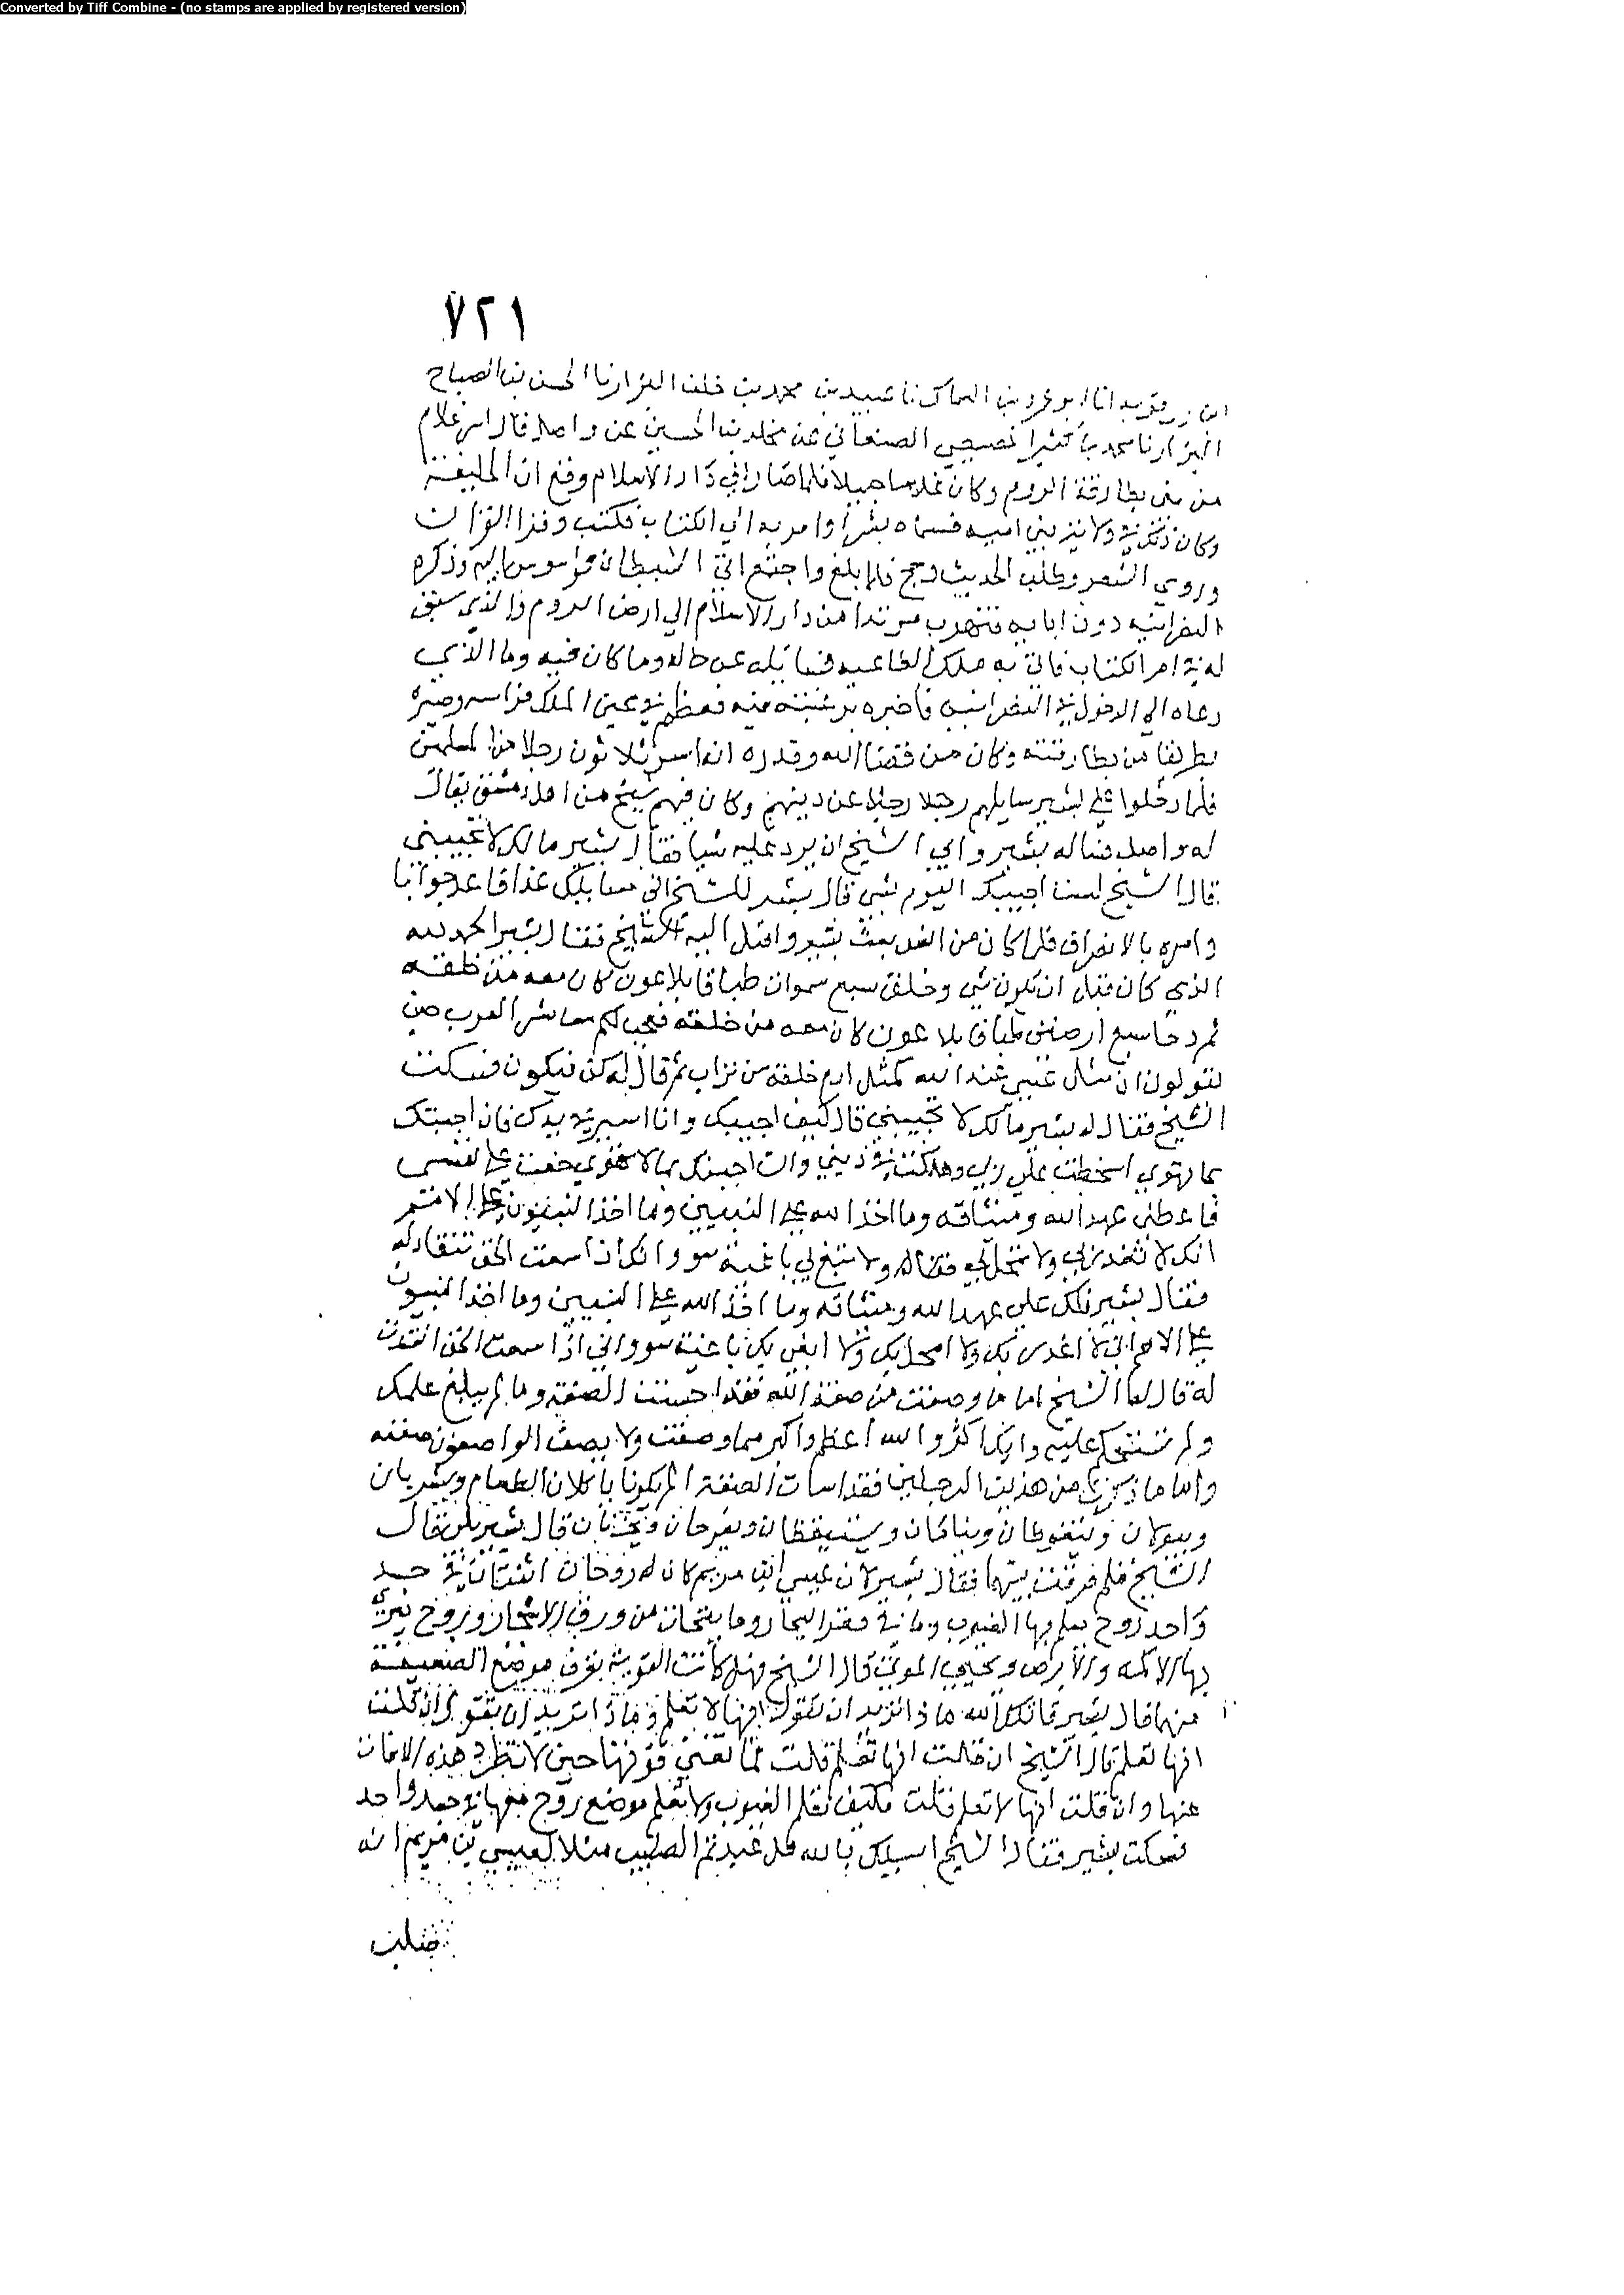 Converted by Tiff Combine - (no stamps are applied by registered version)
٧٢١
ابن زرقويه انا ابو عمرو بن السماك نا عبيد بن محمد بن خلف البزار نا الحسن بن الصباح
البزار نا محمد بن كثير المصيصي الصنعاني عن مخلد بن الحسين عن واصل قال اسر غلام
من بني بطارقة الروم وكان غلاما جميلا فلما صار الي دار الاسلام وقع الي الخليفة
وكان ذلك في ولاية بني امية فسماه بشيرا وامر به الي الكتاب فكتب وقرا القران
وروي الشعر وطلب الحديث وحج فلما بلغ واجتمع اتي الشيطان فوسوس اليه وذكره
النصرانيه دون ابايه فتهرب مرتدا من دار الاسلام الي ارض الروم والذي سبق
له في ام الكتاب فاتي به ملك الطاغيه فسايله عن حاله وما كان فيه وما الذي
دعاه الي الدخول في النصرانيه فاخبره برغبته فيه فعظم في عين الملك فراسه وصيره
بطريقا من بطارقته وكان من قضا الله وقدره انه اسر ثلاثون رجلا من المسلمين
فلما دخلوا علي بشير سايلهم رجلا رجلا عن دينهم وكان فيهم شيخ من اهل دمشق يقال
له واصل فساله بشير وابي الشيخ ان يرد عليه شيا فقال بشير مالك لا تجيبني
قال الشيخ لست اجيبك اليوم بشي قال بشير للشيخ اني مسايلك غدا فاعد جوابا
وامره بالانصراف فلما كان من الغد بعث بشير واقبل اليه الشيخ فقال بشير الحمد لله
الذي كان قبل ان يكون شي وخلق سبع سموات طباقا بلا عون كان معه من خلقه
ثم دحا سبع ارضين طباقا بلا عون كان معه من خلقه فعجب لكم معاشر العرب حين
تقولون ان مثل عيسي عند الله كمثل ادم خلقه من تراب ثم قال له كن فيكون فسكت
الشيخ فقال له بشير مالك لا تجيبني قال كيف اجيبك وانا اسير في يدك فان اجبتك
بما تهوي اسخطت علي ربي وهلكت في ديني وان اجبتك بما لا تهوي خفت علي نفسي
فاعطني عهد الله وميثاقه وما اخذ الله علي النبيين وما اخذ النبيون علي الامم
انك لا تغدر بي ولا تمحل بي ولا تبغ لي باغية سوو انك اذا سمعت الحق تنقاد له
فقال بشير فلك علي عهد الله وميثاقه وما اخذ الله علي النبيين وما اخذ النبيون
علي الامم اني لا اغدر بك ولا امحل بك ولا ابغي بك باغية سوو اني اذا سمعت الحق انقدت
له قال له الشيخ اما ما وصفت من صفة الله فقد احسنت الصفة وما لم يبلغ علمك
ولم تستحكم عليه رايك اكثر والله اعظم واكبر مما وصفت ولا يصف الواصفون صفته
واما ما ذكرت من هذين الرجلين فقد اسات الصفة الم يكونا ياكلان الطعام ويشربان
ويبولان ويتغوطان وينامان ويستيقظان ويفرحان ويحزنان قال بشير بلي قال
الشيخ فلم فرقت بينهما فقال بشير لان عيسي ابن مريم كان له روحان اثنتان في جسد
واحد روح يعلم بها الغيوب وما في قعر البحار وما ينحات من ورق الاشجار وروح يبري
بها الاكمه والابرص ويحيي الموتي قال الشيخ فهل كانت القوية تعرف موضع الضعيفة
منهما قال بشير قاتلك الله ماذا تريد ان تقول انها لا تعلم وماذا تريد ان تقول ان قلت
انها تعلم قال الشيخ ان قلت انها تعلم قلت فما تغني قوتها حين لا تطرد هذه الافات
عنها وان قلت انها لا تعلم قلت فكيف تعلم الغيوب ولا تعلم موضع روح معها في جسد واحد
فسكت بشير فقال الشيخ اسيلك بالله هل عبدتم الصليب مثلا لعيسي بن مريم انه
صلب